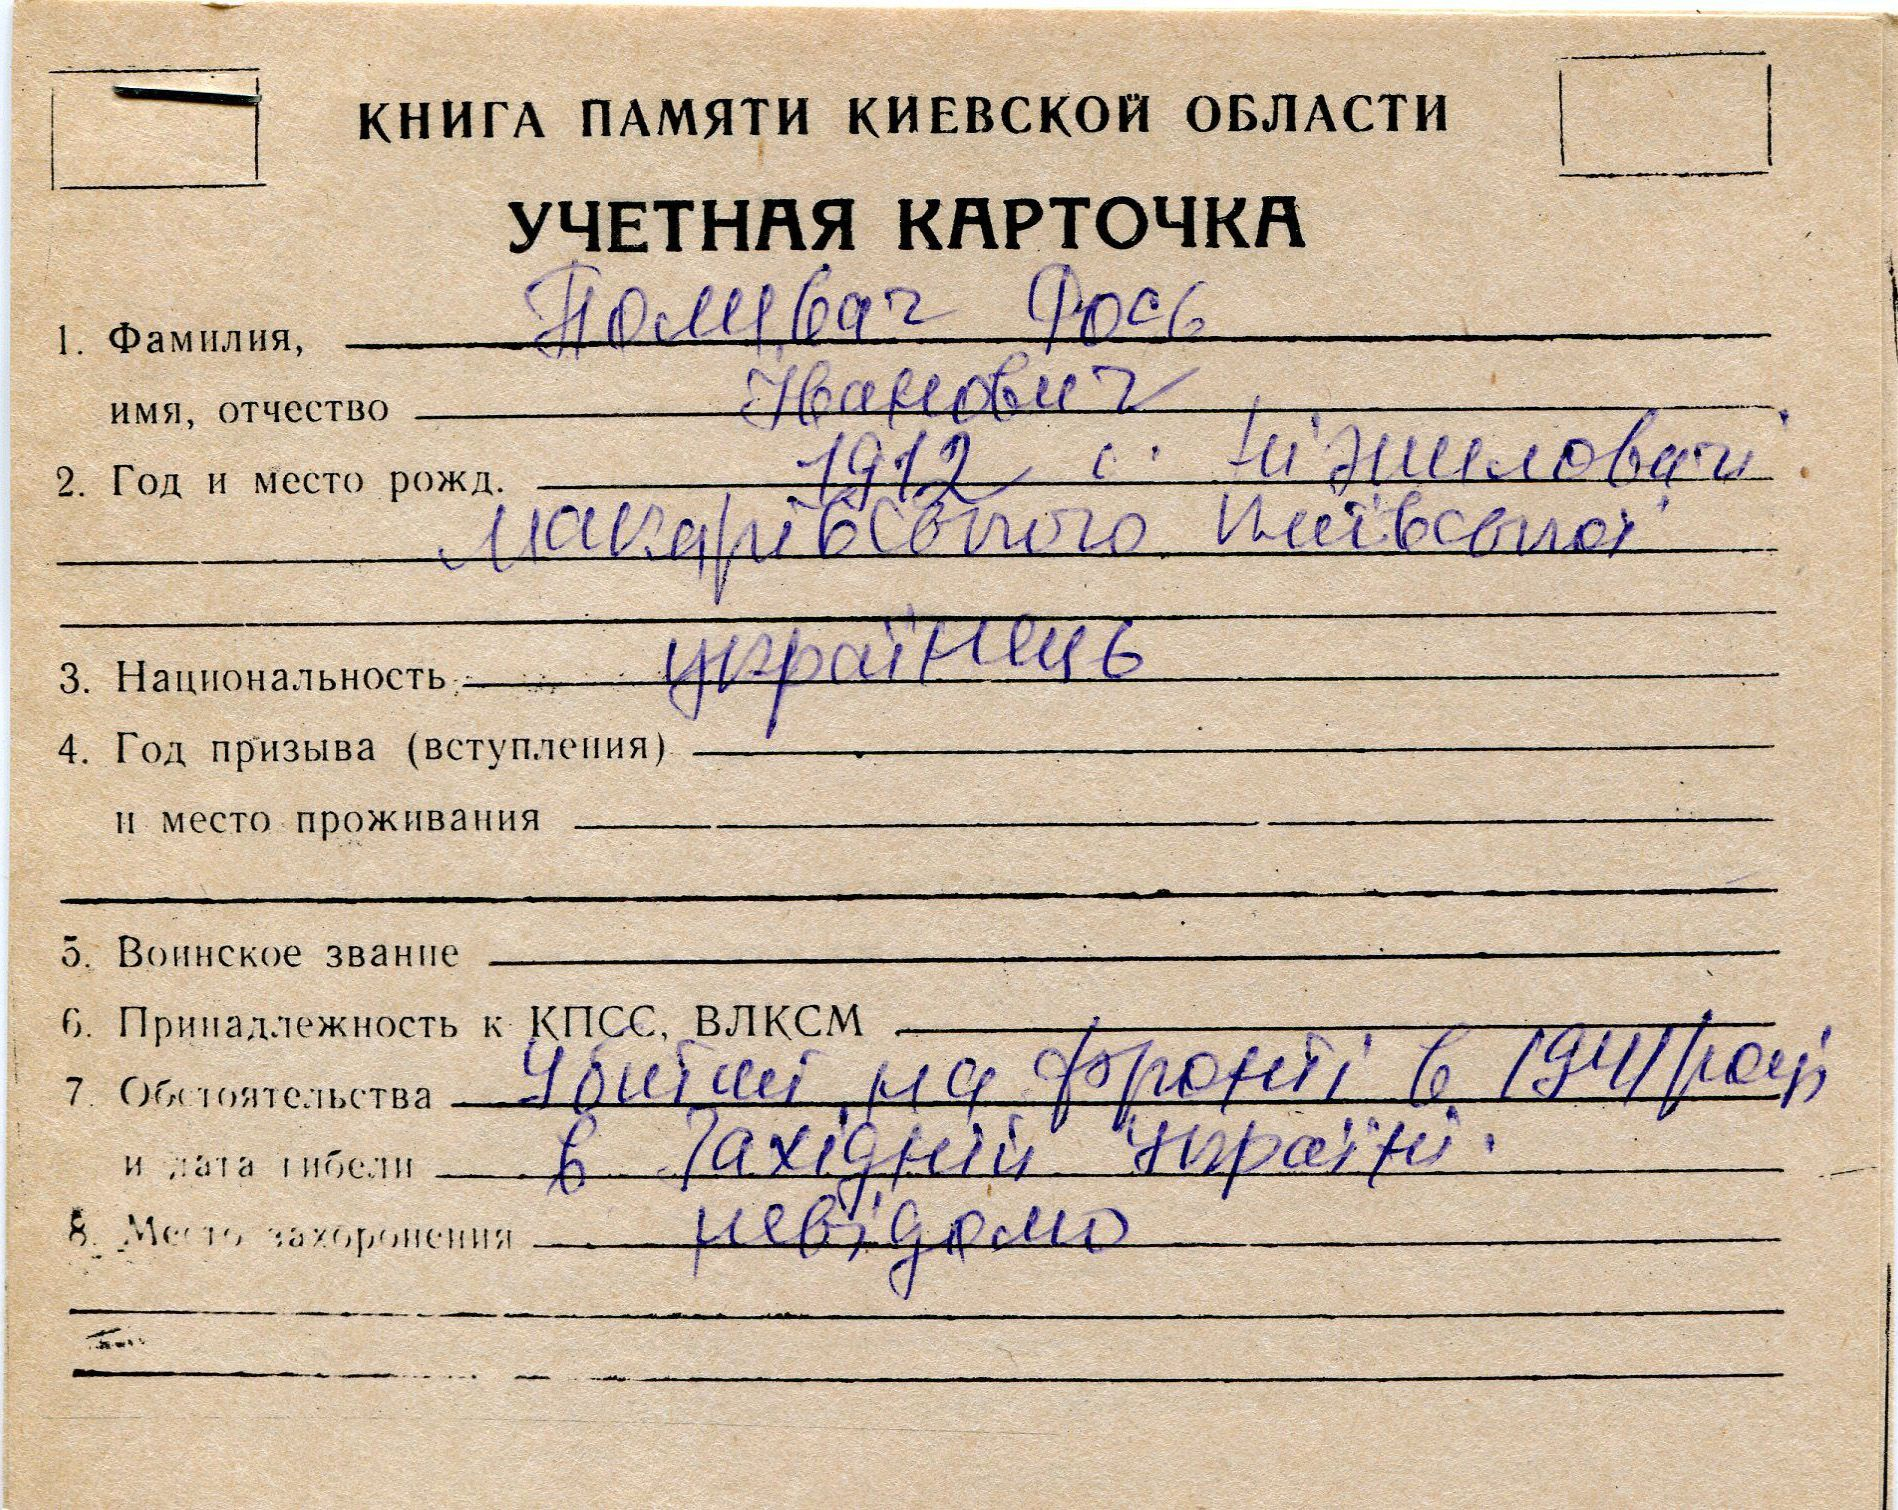 КНИГА ПАМЯТИ КИЕВСКОЙ ОБЛАСТИ
УЧЕТНАЯ КАРТОЧКА
1. Фамилия, Поливач Фось
имя, отчество Іванович
2. Год и место рожд. 1912 с. Ніжиловичі
Макарівського Київської
3. Национальность українець
4. Год призыва (вступления)
и место проживания
5. Воинское звание
6. Принадлежность к КПСС, ВЛКСМ
7. Обстоятельства Убитий на фронті в 1941 році
и дата гибели в Західній Україні.
8. Место захоронения невідомо